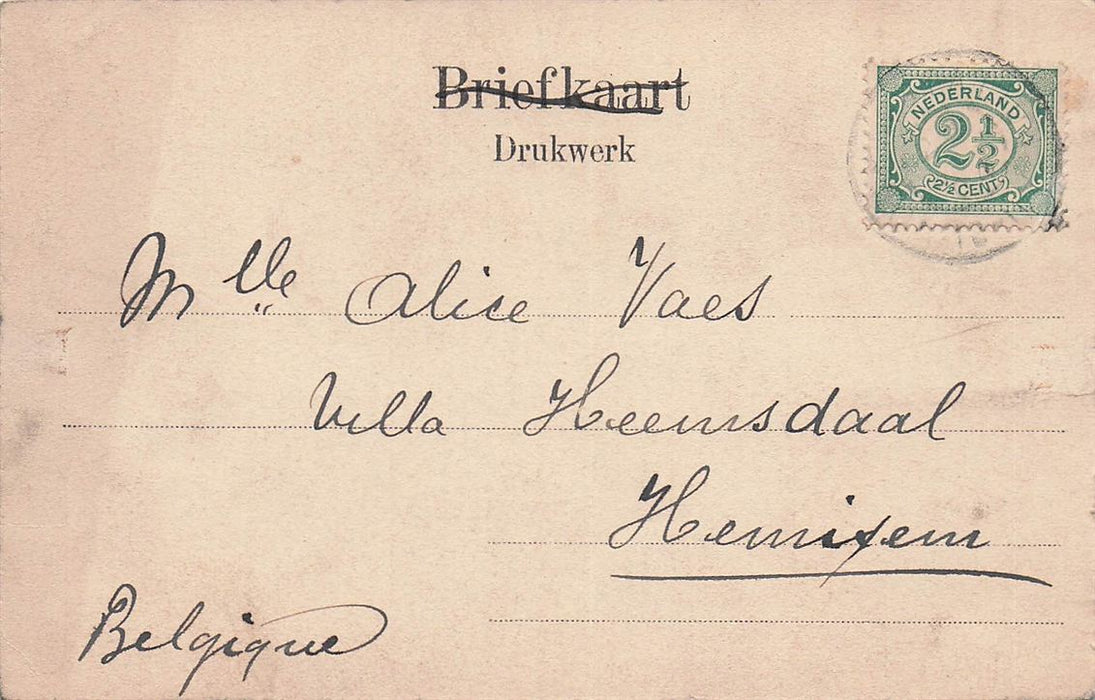 Briefkaart
Drukwerk
NEDERLAND
2 1/2
2 1/2 CENT
Mlle Alice Vaes
Villa Heemsdaal
Hemixem
Belgique